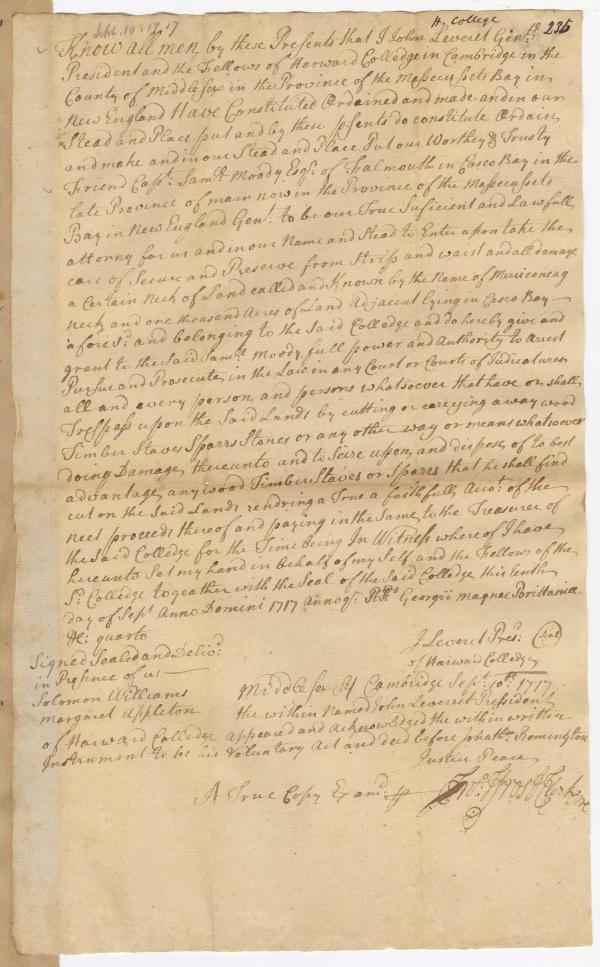 Sept. 10: 1717
H. College
236
Know all men by these Presents that I John Leveret Gent.
President and the Fellows of Harward Colledge in Cambridge in the
County of Middlesex in the Province of the Massecussets Bay in
New England Have Constituted Ordained and made and in our
Stead and Place put and by these psents do constitute Ordain
and make and in our Stead and Place Put our Worthey & Trusty
Friend Capt. Samll. Moody Esqr. of Falmouth in Casco Bay in the
late Province of main now in the Province of the Massecussets
Bay in New England Gent. to be our True Suficient and Lawfull
attorny for us and in our Name and Stead to Enter upon take the
care of Secure and Preserve from Strip and waist and all damage
a Certain Neck of Land called and Known by the Name of Mericoneag
neck and one thousand Acres of Land Adjacent lying in Casco Bay
afores.d and belonging to the Said Colledge and do hereby give and
grant to the Said Samll. Moody full power and Authority to Arrest
Pursue and Prosecute in the Law in any Court or Courts of Judicature
all and every person and persons whatsoever that have or shall
Tresspass upon the Said Lands by cutting or carrying away wood
Timber Staves Sparrs Stones or any other way or means whatsoever
doing Damage thereunto and to Seize upon and dispose of to best
advantage any wood Timber Staves or Sparrs that he shall find
cut on the Said Land, rendring a True a faithfull Accot. of the
neet proceeds thereof and paying in the Same to the Treasurer of
the Said Colledge for the Time being In Witness whereof I have
hereunto Set my hand in behalf of my Self and the Fellows of the
Sd. Colledge togeather with the Seal of the Said Colledge this tenth
day of Sept. Anno Domini 1717 Annoq. RRs Georgii magnae Brittaniae
&c: quarto
Signed Sealed and Delivd.
in Presence of us
Solomon Williams
Margaret Appleton
J Leveret Pres. Seal
of Harward Colledge
Middlesex Ss Cambridge Sept. 10th. 1717
the within Named John Leveret President
of Harward Colledge appeared and acknowledged the within written
Instrument to be his Voluntary Act and deed before Remington
Justice Peace
A True Copy Exand.